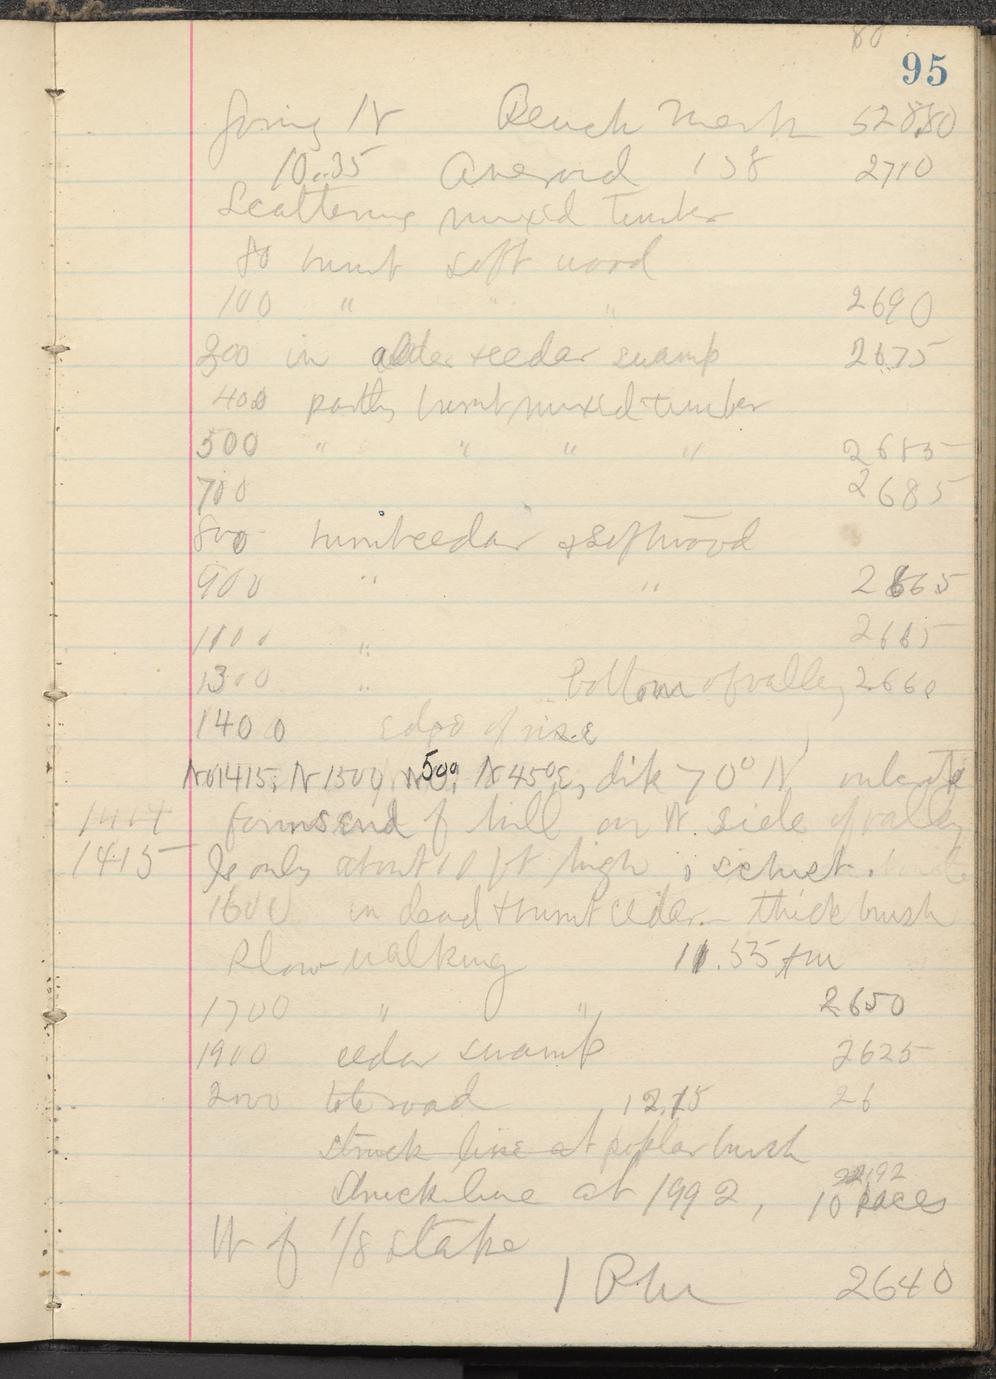 80
95
Going N Bench Mark 52880
10.35 Aneroid 138 2710
Scattering mixed timber
80 burnt soft wood
100 " " " 2690
300 in alder & cedar swamp 2675
400 partly burnt mixed timber
500 " " " " 2685
700 2685
800 burnt cedar & softwood
900 " " 2665
1100 " 2665
1300 " bottom of valley 2660
1400 edge of rise
No 1415; N 1500, W 500; N 45° E, dik 70° N
1414 forms end of hill on N side of valley
1415 Is only about 10 ft high ; schist.
1600 in dead & burnt cedar - thick brush
Slow walking 11.55 Am
1700 " " 2650
1900 cedar swamp 2625
2000 tote road , 12.15 26
Struck line at poplar brush
2192
Struck line at 1992 , 10 paces
W of 1/8 stake
1 PM 2640